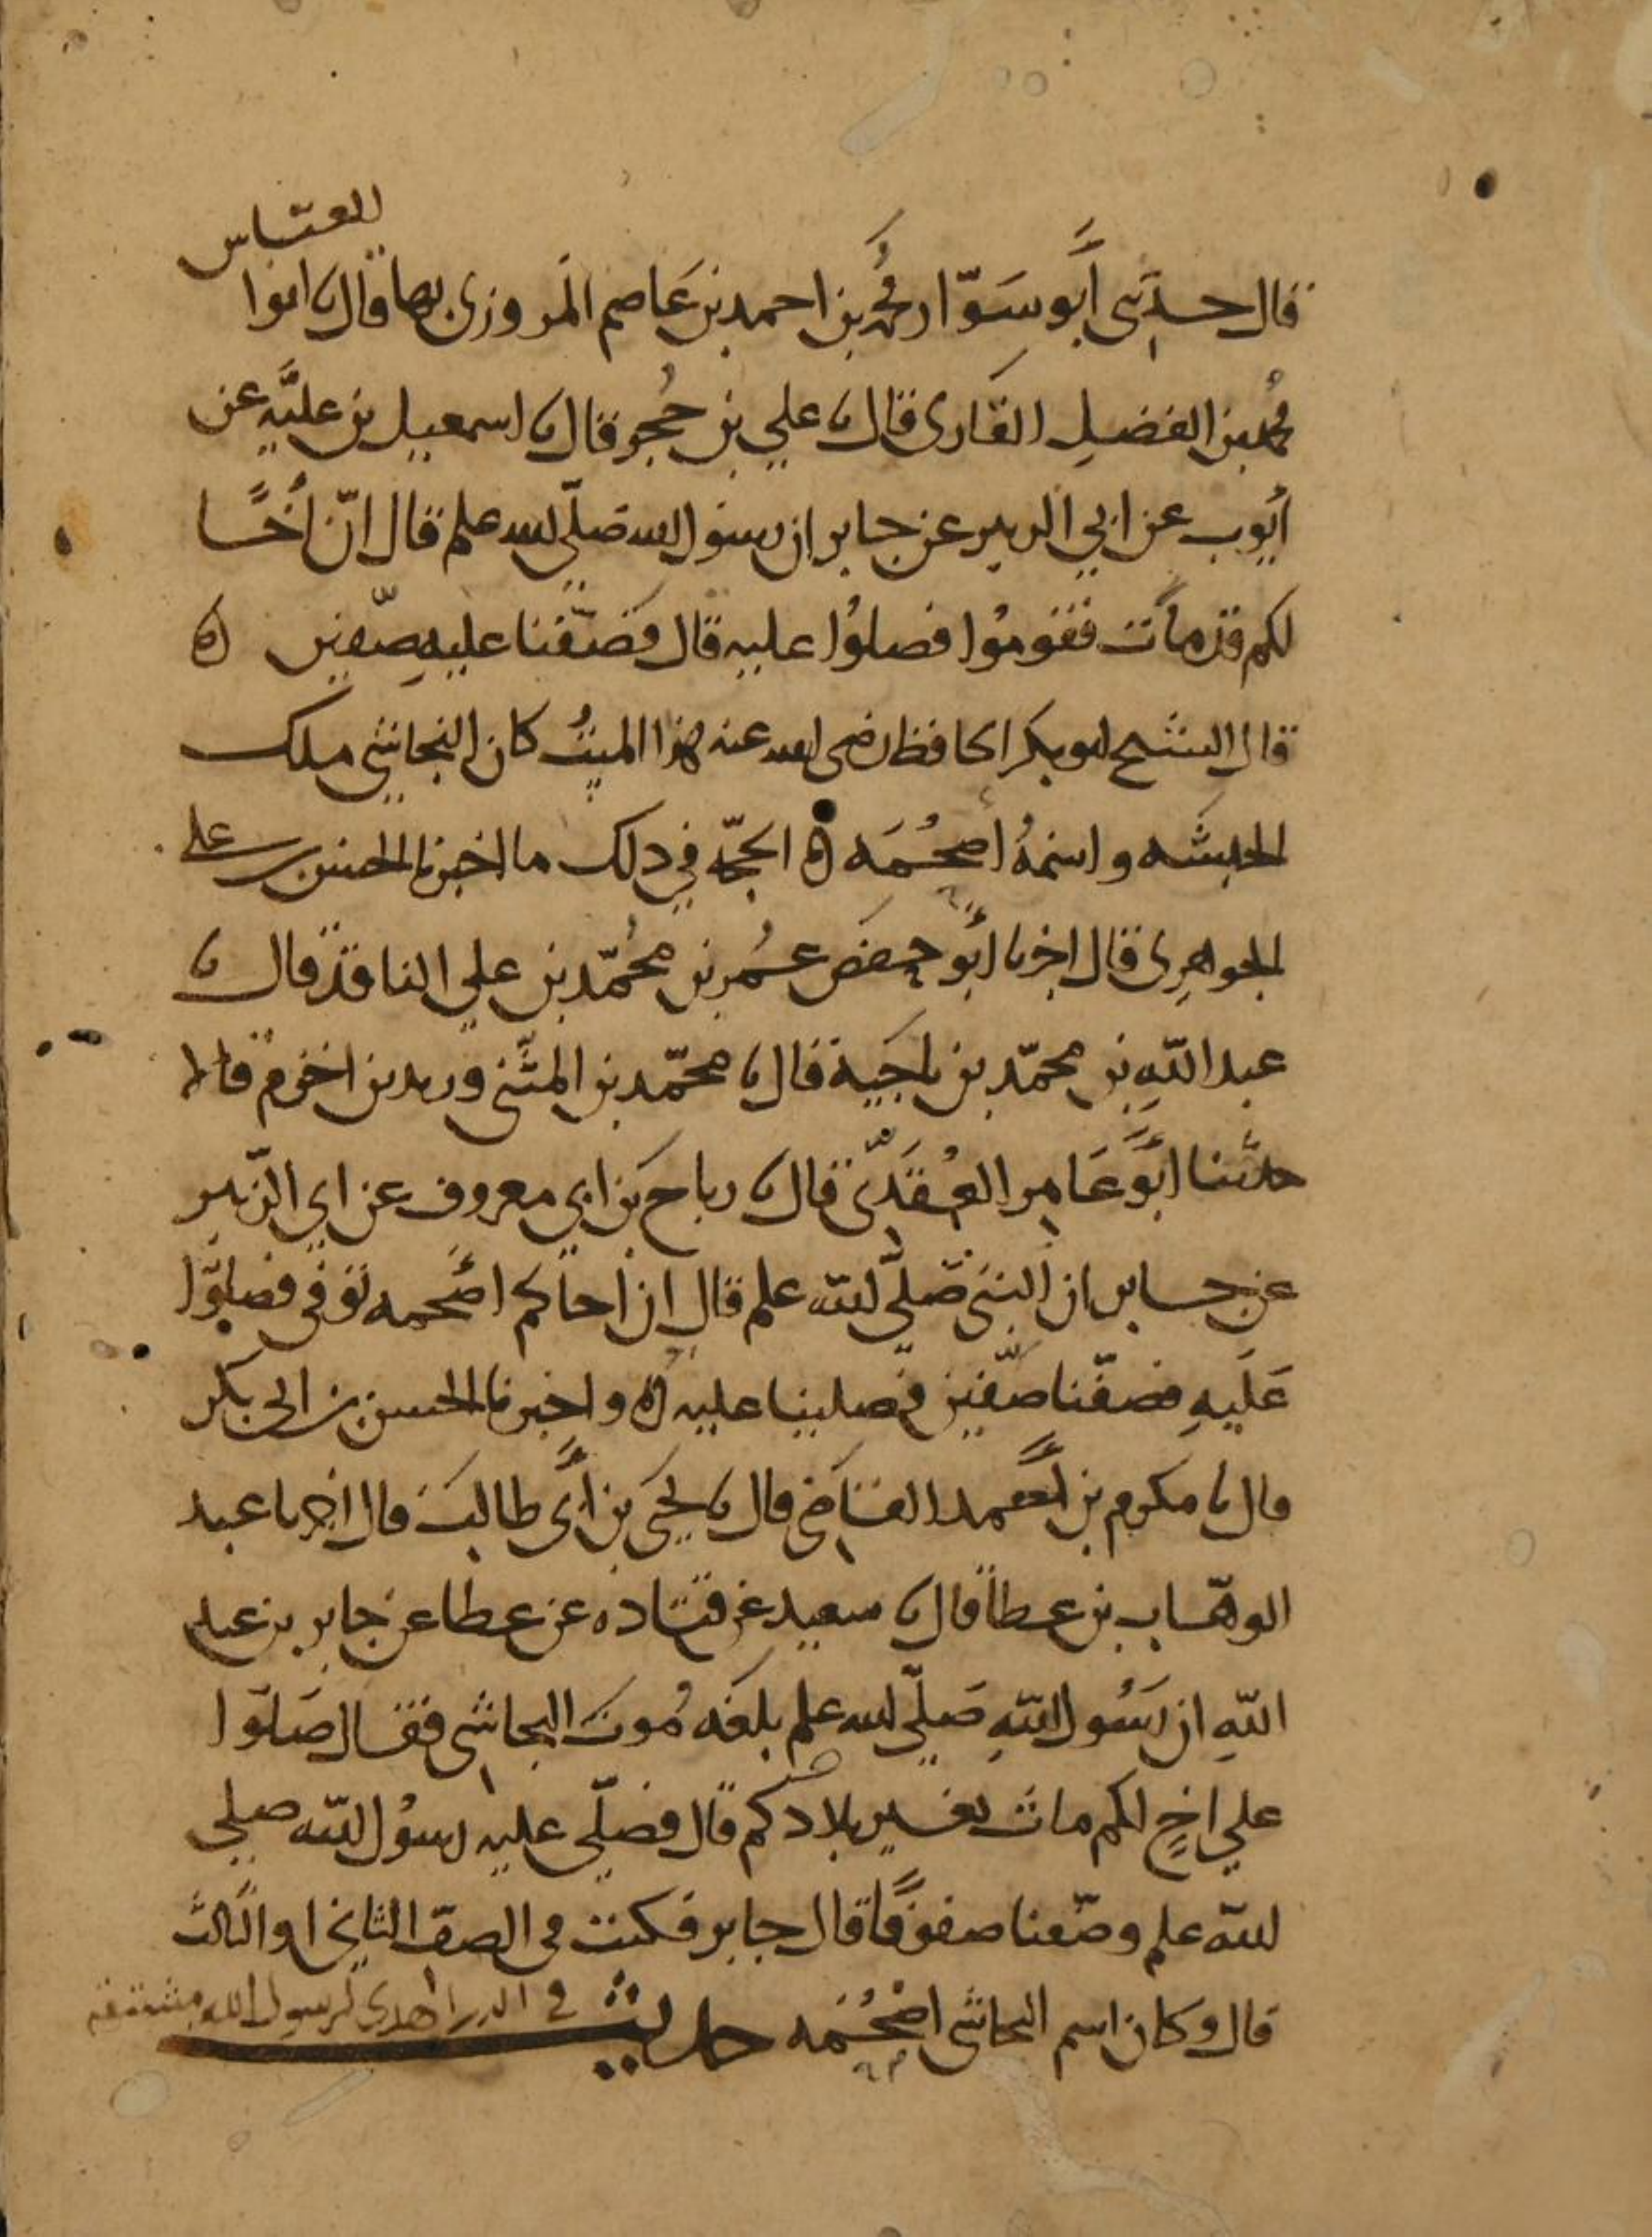 العباس
قال حدثني أبو سَوّار محمد بن احمد بن عَاصم المروزى بها قال نا ابوا
محمد بن الفضيلِ القارى قال نا علي بن حُجر قال نا اسمعيل بن عليَّه عن
أيوب عن ابي الزبير عن جابر ان رسول الله صَلّي الله علم قال انّ أخًا
لكم قد مات فقوموُا فصلوُا عليه قال فصَفّفنا عليهِ صّفين ه
قال الشيخ ابو بكر الحافظ رضى الله عنه هذا الميتُ كان النجاشي ملك
الحبشه واسمهُ أصحُمَه ه الحجّه في ذلك ما اخبرنا الحسن بن على
الجوهرِى قال اخبرنا أبُو حفص عمُر بن محُمّد بن علي الناقد قال نا
عبد اللهِ بن محمّد بن ناجَيِة قال نا محمّد بن المثني وزيد بن اخزم قالا
حدثنا ابَوُ عَامِر العَقَدّى قال نا رباح بن ابي معروف عن ابي الزّبير
عن جابر ان النبي صَلّي الله علم قال ان اخاكم اصَحمه توفي فصلوّا
عَليهِ فصففّنا صّفين فصلينا عليه ه واخبرنا الحسن بن ابى بكر
قال نا مكرم بن أحمد القاضي قال نا يحيَي بن أبى طالب قال اخبرنا عبد
الوهّاب بن عطا قال نا سعيد عن قتاده عن عطا عن جابر بن عبد
اللهِ ان رَسُول اللهِ صَلّي الله علم بلغَه مُوت النجاشي فقال صَلوّا
علي اخٍ لكم مات بغير بلادكم قال فصلّي عليه رسوُل الله صلي
الله علم وصّفنا صفوفًا قال جابر فكنت فى الصفّ الثاني او الثالث
قال وكان اسم النجاشي اصَحُمه حديث في الدر اهدى لرسول الله مشتقه